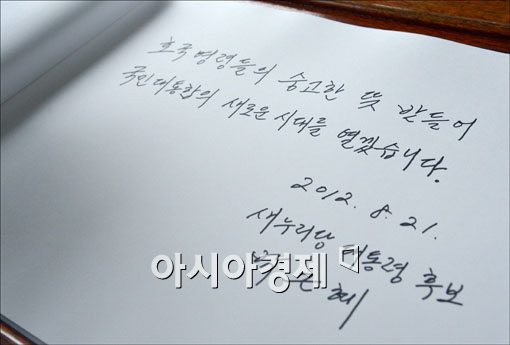 호국영령들의 숭고한 뜻 받들어
국민대통합의 새로운 시대를 열겠습니다.
2012. 8. 21.
새누리당 대통령 후보
박근혜
아시아경제